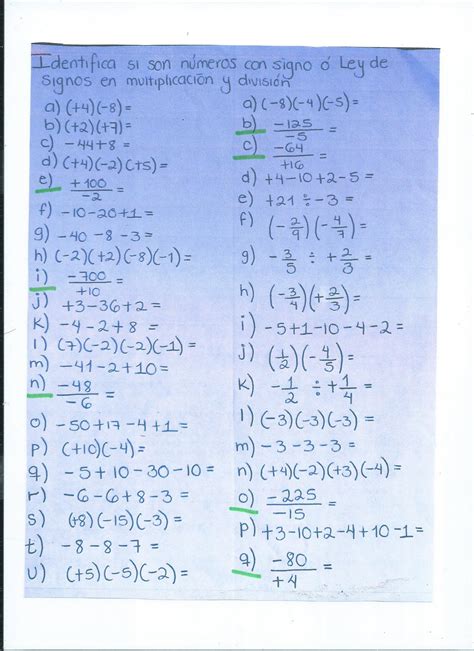 Identifica si son números con signo ó Ley de
signos en multiplicación y división
a) (+4)(-8)=
b) (+2)(+7)=
c) -44+8=
d) (+4)(-2)(+5)=
e) +100/-2 =
f) -10-20+1=
g) -40 -8 -3=
h) (-2)(+2)(-8)(-1)=
i) -700/+10 =
j) +3-36+2=
k) -4-2+8 =
l) (7)(-2)(-2)(-1)=
m) -41-2+10=
n) -48/-6 =
o) -50+17-4+1=
p) (+10)(-4)=
q) -5+10-30-10=
r) -6-6+8-3=
s) (+8)(-15)(-3)=
t) -8-8-7=
u) (+5)(-5)(-2)=
a) (-8)(-4)(-5)=
b) -125/-5 =
c) -64/+16 =
d) +4-10+2-5=
e) +21 ÷ -3=
f) (-2/9)(-4/7)=
g) -3/5 ÷ +2/3 =
h) (-3/4)(+2/3)=
i) -5+1-10-4-2=
j) (1/2)(-4/5)=
k) -1/2 ÷ +1/4 =
l) (-3)(-3)(-3)=
m) -3-3-3=
n) (+4)(-2)(+3)(-4)=
o) -225/-15 =
p) +3-10+2-4+10-1=
q) -80/+4 =